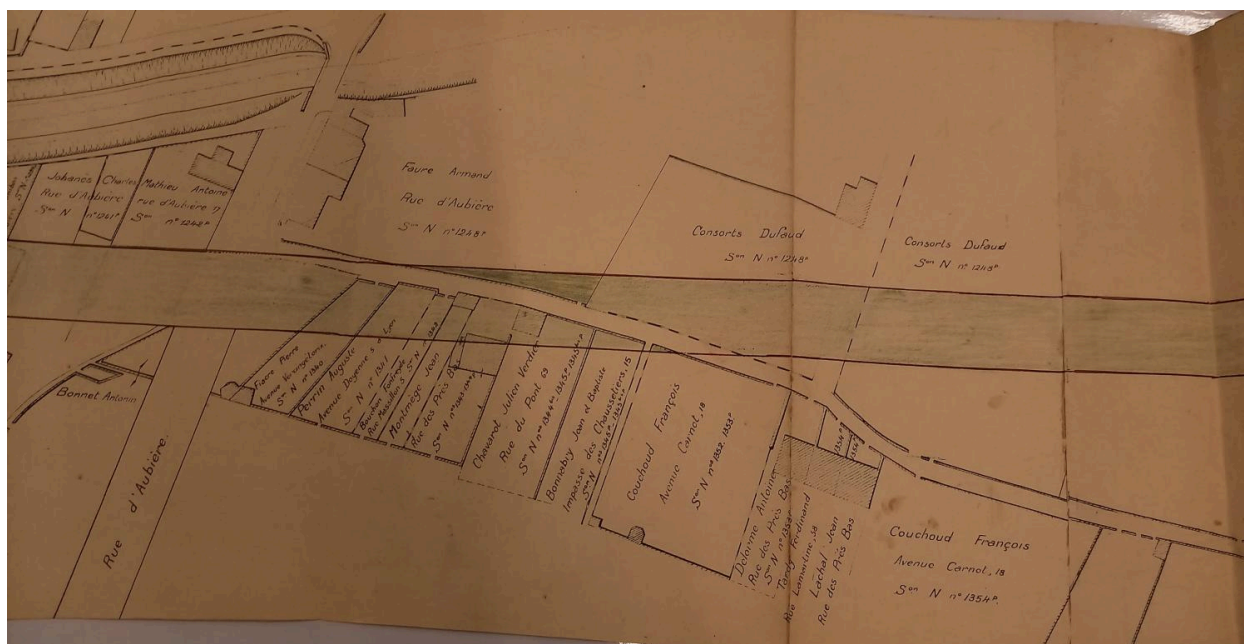 Johanès Charles
Rue d'Aubière
Son N n° 1241p
Mathieu Antoine
rue d'Aubière 7
Son n° 1242p
Faure Armand
Rue d'Aubière
Son N n° 1248p
Consorts Dufaud
Son N n° 1248p
Consorts Dufaud
Son N n° 1248p
Bonnet Antonin
Rue d'Aubière
Pierre
Avenue
Son N n° 1340
Perrin Auguste
Avenue
Son N n° 1341
Rue Massillon 5 Son N n°
Montmège Jean
Rue des Près Bas
Son N n°
Chavarot Julien Verdier
Rue du Pont 69
Son N nos 1345p
Bonnabry Jean et Baptiste
Impasse des Chausseliers, 15
Son N nos
Couchoud François
Avenue Carnot, 18
Son N nos 1352, 1353p
1354p
1354p
Delorme Antoine
Rue des Près Bas
Son N n° 1354p
Tardy Ferdinand
Rue Lamartine, 38
Lachal Jean
Rue des Près Bas
Couchoud François
Avenue Carnot, 18
Son N n° 1354p.